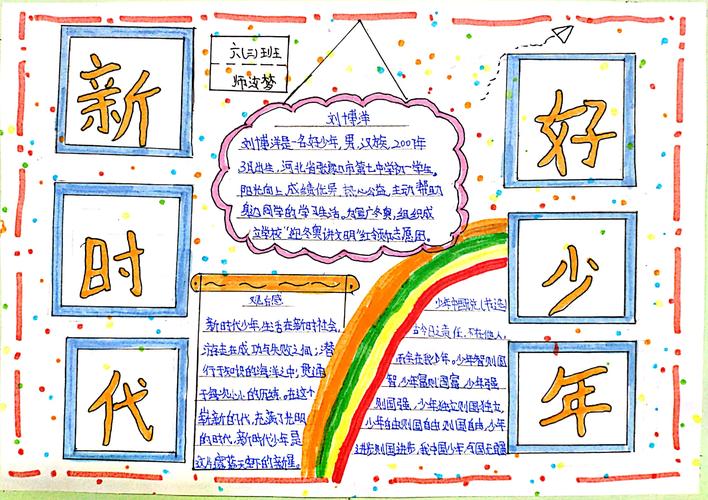 新
时
代
好
少
年
六(三)班
刘博洋
刘博洋是一名好少年,男,汉族,2007年
3月出生,河北省张家口市第七中学初一学生。
阳光向上,成绩优异,热心公益,主动帮助
身边同学的学习生活。为推广冬奥,组织成
立学校“迎冬奥讲文明”红领巾志愿团。
观后感
新时代少年,生活在新时社会,
游走在成功与失败之间;潜
行于知识的海洋之中,
于每次小小的历练。在这个
崭新的代,充满了光明
的时代,新时代少年是
这片蔚蓝天空下的新星。
少年中国说(节选)
今日之责任,不在他人,
而全在我少年。少年智则国
智,少年富则国富,少年强
则国强,少年独立则国独立,
少年自由则国自由,少年
进步则国进步,我中国少年,与国无疆